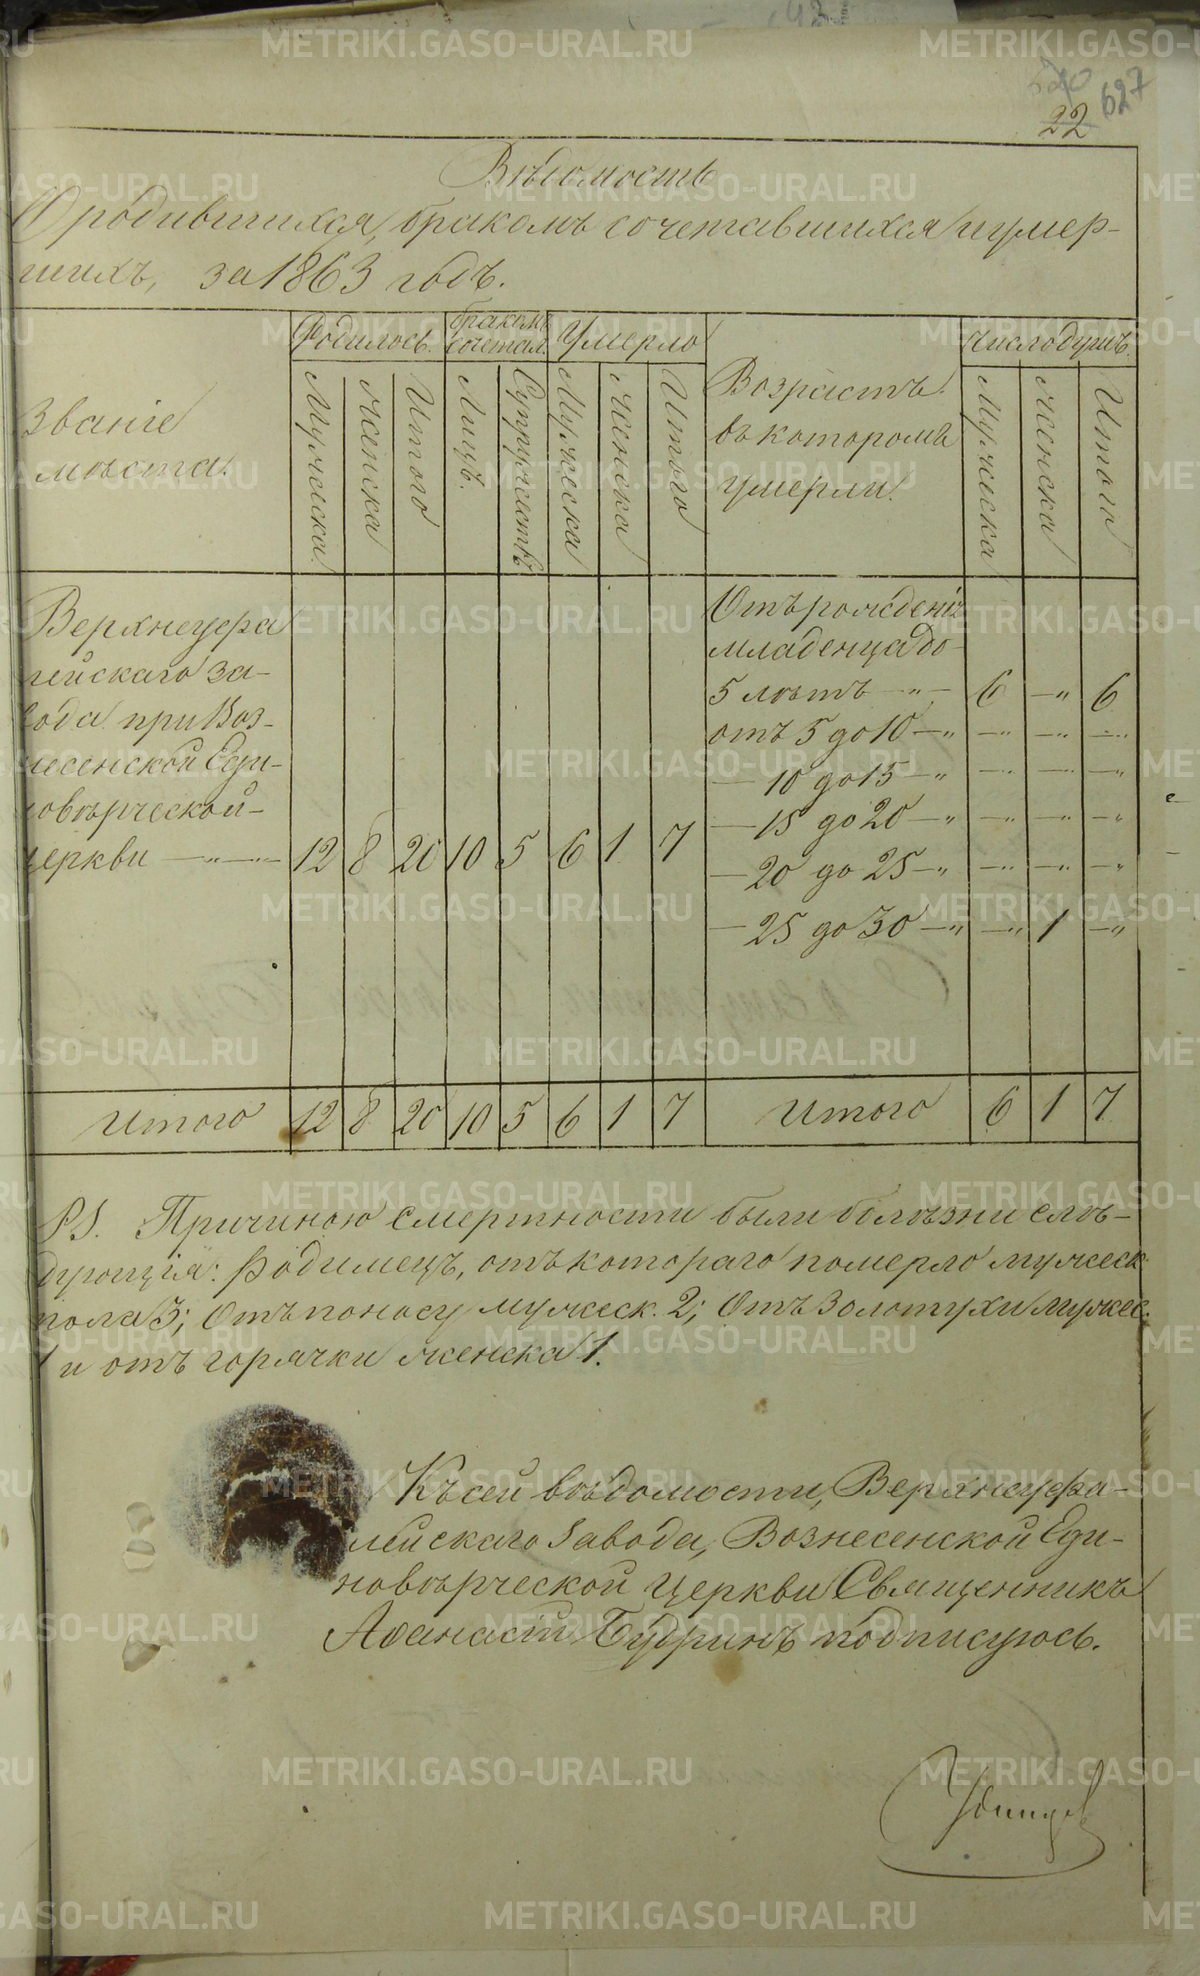 627
22
Вѣдомость
О родившихся, бракомъ сочетавшихся и умер-
шихъ, за 1863 годъ.
Званіе
мѣста.
Родилось.
Мужеска.
Женска
Итого
бракомъ
сочетал.
Лицъ.
Супружествъ
Умерло
Мужеска
Женска
Итого
Возрастъ
въ которомъ
умерли.
Число душъ.
Мужеска
Женска
Итого
Верхнеуфа
лейскаго за-
вода при Воз-
несенской Еди-
новѣрческой
церкви —„— 12 8 20 10 5 6 1 7
Отъ рожденія
младенца до
5 лѣтъ —„— 6 —„ 6
отъ 5 до 10 —„ —„ —„ —„
— 10 до 15 —„ —„ —„ —„
— 15 до 20 —„ —„ —„ —„
— 20 до 25 —„ —„ —„ —„
— 25 до 30 —„ —„ 1 —„
Итого 12 8 20 10 5 6 1 7 Итого 6 1 7
PS. Причиною смертности были болѣзни слѣ-
дующія: Родимецъ, отъ котораго померло мужеск
пола 3; Отъ поносу мужеск. 2; Отъ Золотухи мужес.
1 и отъ горячки женска 1.
Къ сей вѣдомости, Верхнеуфа-
лейскаго Завода, Вознесенской Еди-
новѣрческой Церкви Священникъ
Аѳанасій Будринъ подписуюсь.
METRIKI.GASO-URAL.RU